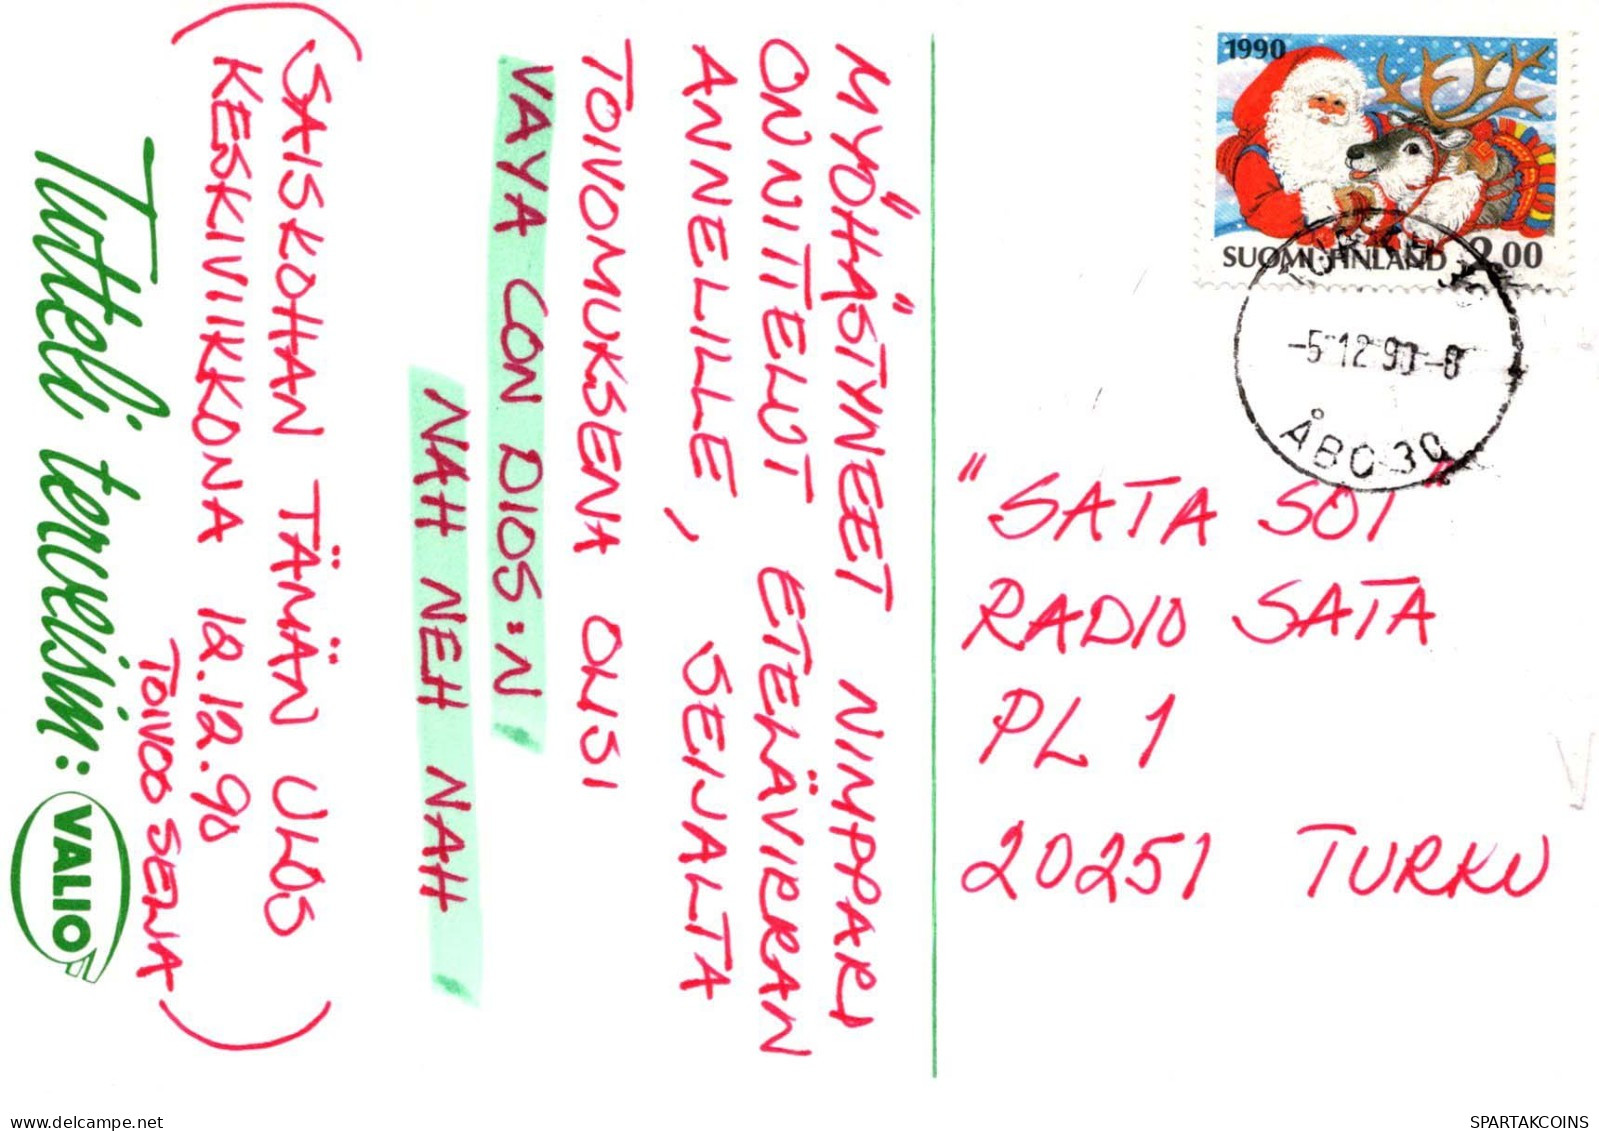 MYÖHÄSTYNEET NIMPPARI
ONNITTELUT ETELÄVIRRAN
ANNELILLE, SEIJALTA
TOIVOMUKSENA OLISI
VAYA CON DIOS:N
NAH NEH NAH
(SAISKOHAN TÄMÄN ULOS
KESKIVIIKKONA 12.12.90
TOIVOO SEIJA)
Tutteli terveisin:
VALIO
1990
SUOMI·FINLAND 2,00
-5 12 90-8
ÅBO 30
"SATA SOI"
RADIO SATA
PL 1
20251 TURKU
delcampe.net
SPARTAKCOINS